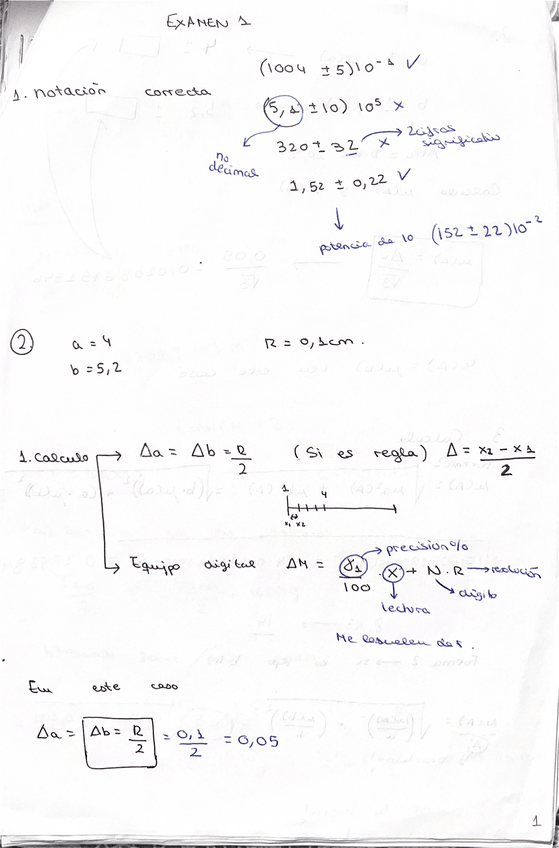 EXAMEN 1
(1004 ± 5)10⁻¹ ✓
1. notación correcta
(5,1 ± 10) 10⁵ x
no decimal
320 ± 32 x → 2 cifras significativ
1,52 ± 0,22 ✓
potencia de 10 (152 ± 22)10⁻²
2. a = 4 R = 0,1cm.
b = 5,2
1. calculo → Δa = Δb = R/2 (Si es regla) Δ = x₂ - x₁ / 2
1 4
x₁ x₂
→ Equipo digital ΔM = γ₁/100 · X + N·R → resolución
precision %
lectura
digito
Me lo suelen dar.
En este caso
Δa = Δb = R/2 = 0,1/2 = 0,05
1